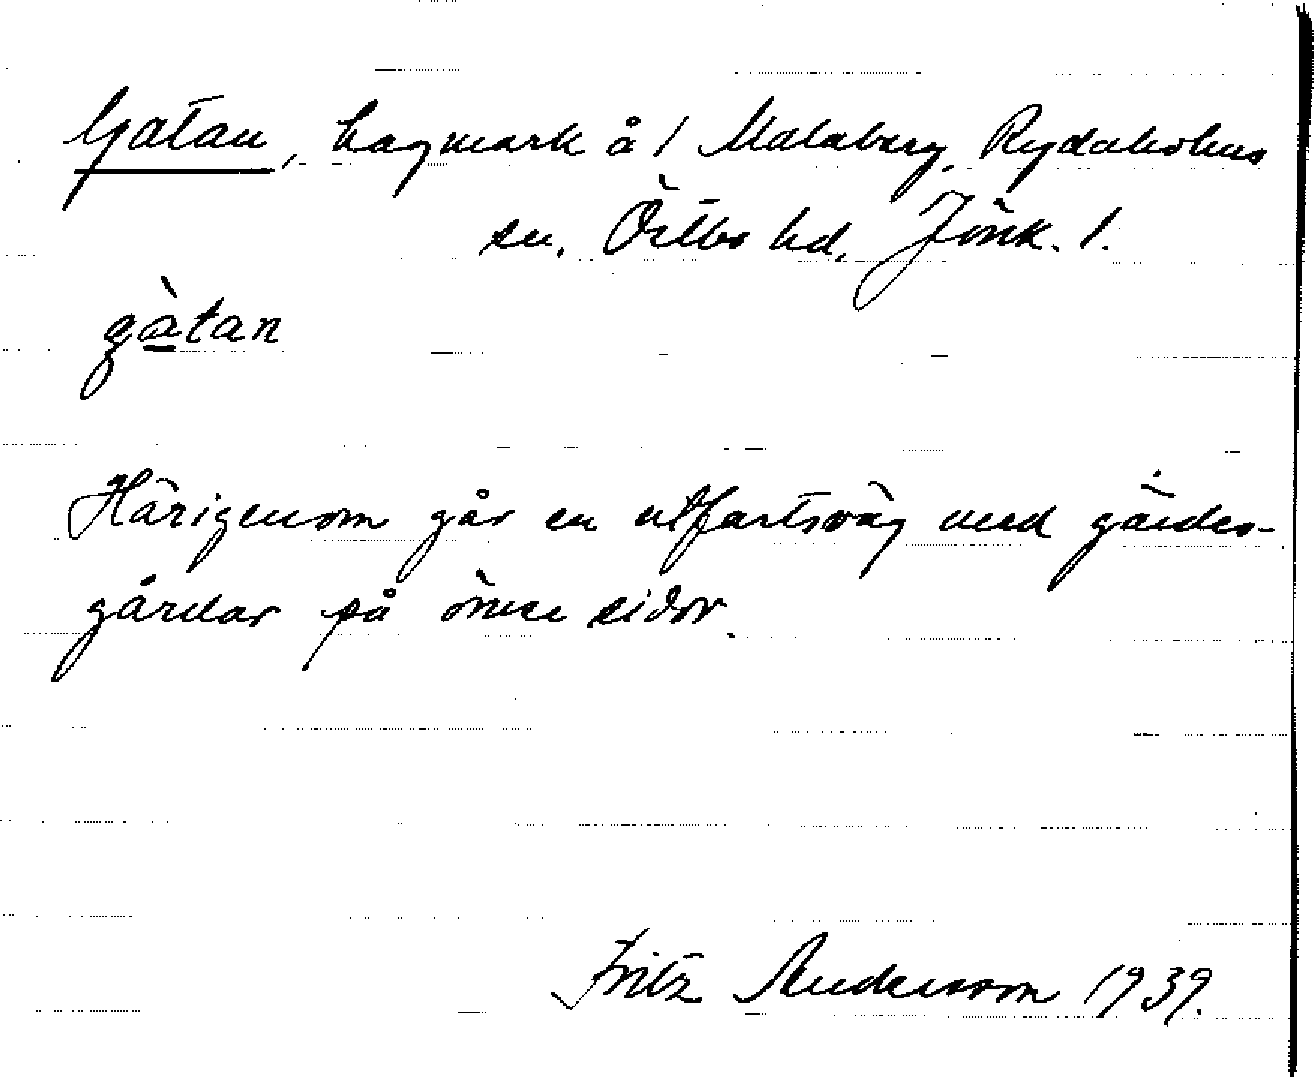 Gatan, hagmark å 1 Målaberg, Rydaholms
sn. Östbo hd. Jönk. l.
gàtan
Härigenom går en utfartsväg med gärdes-
gårdar på ömse sidor.
Fritz Andersson 1939.